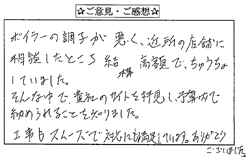 ☆ご意見・ご感想☆
ボイラーの調子が悪く、近所の店舗に
相談したところ 結構 高額で、ちゅうちょ
していました。
そんな中で、貴社のサイトを拝見し、予算内で
納められることを知りました。
工事もスムーズで対応にも満足しています。ありがとう
ございました。